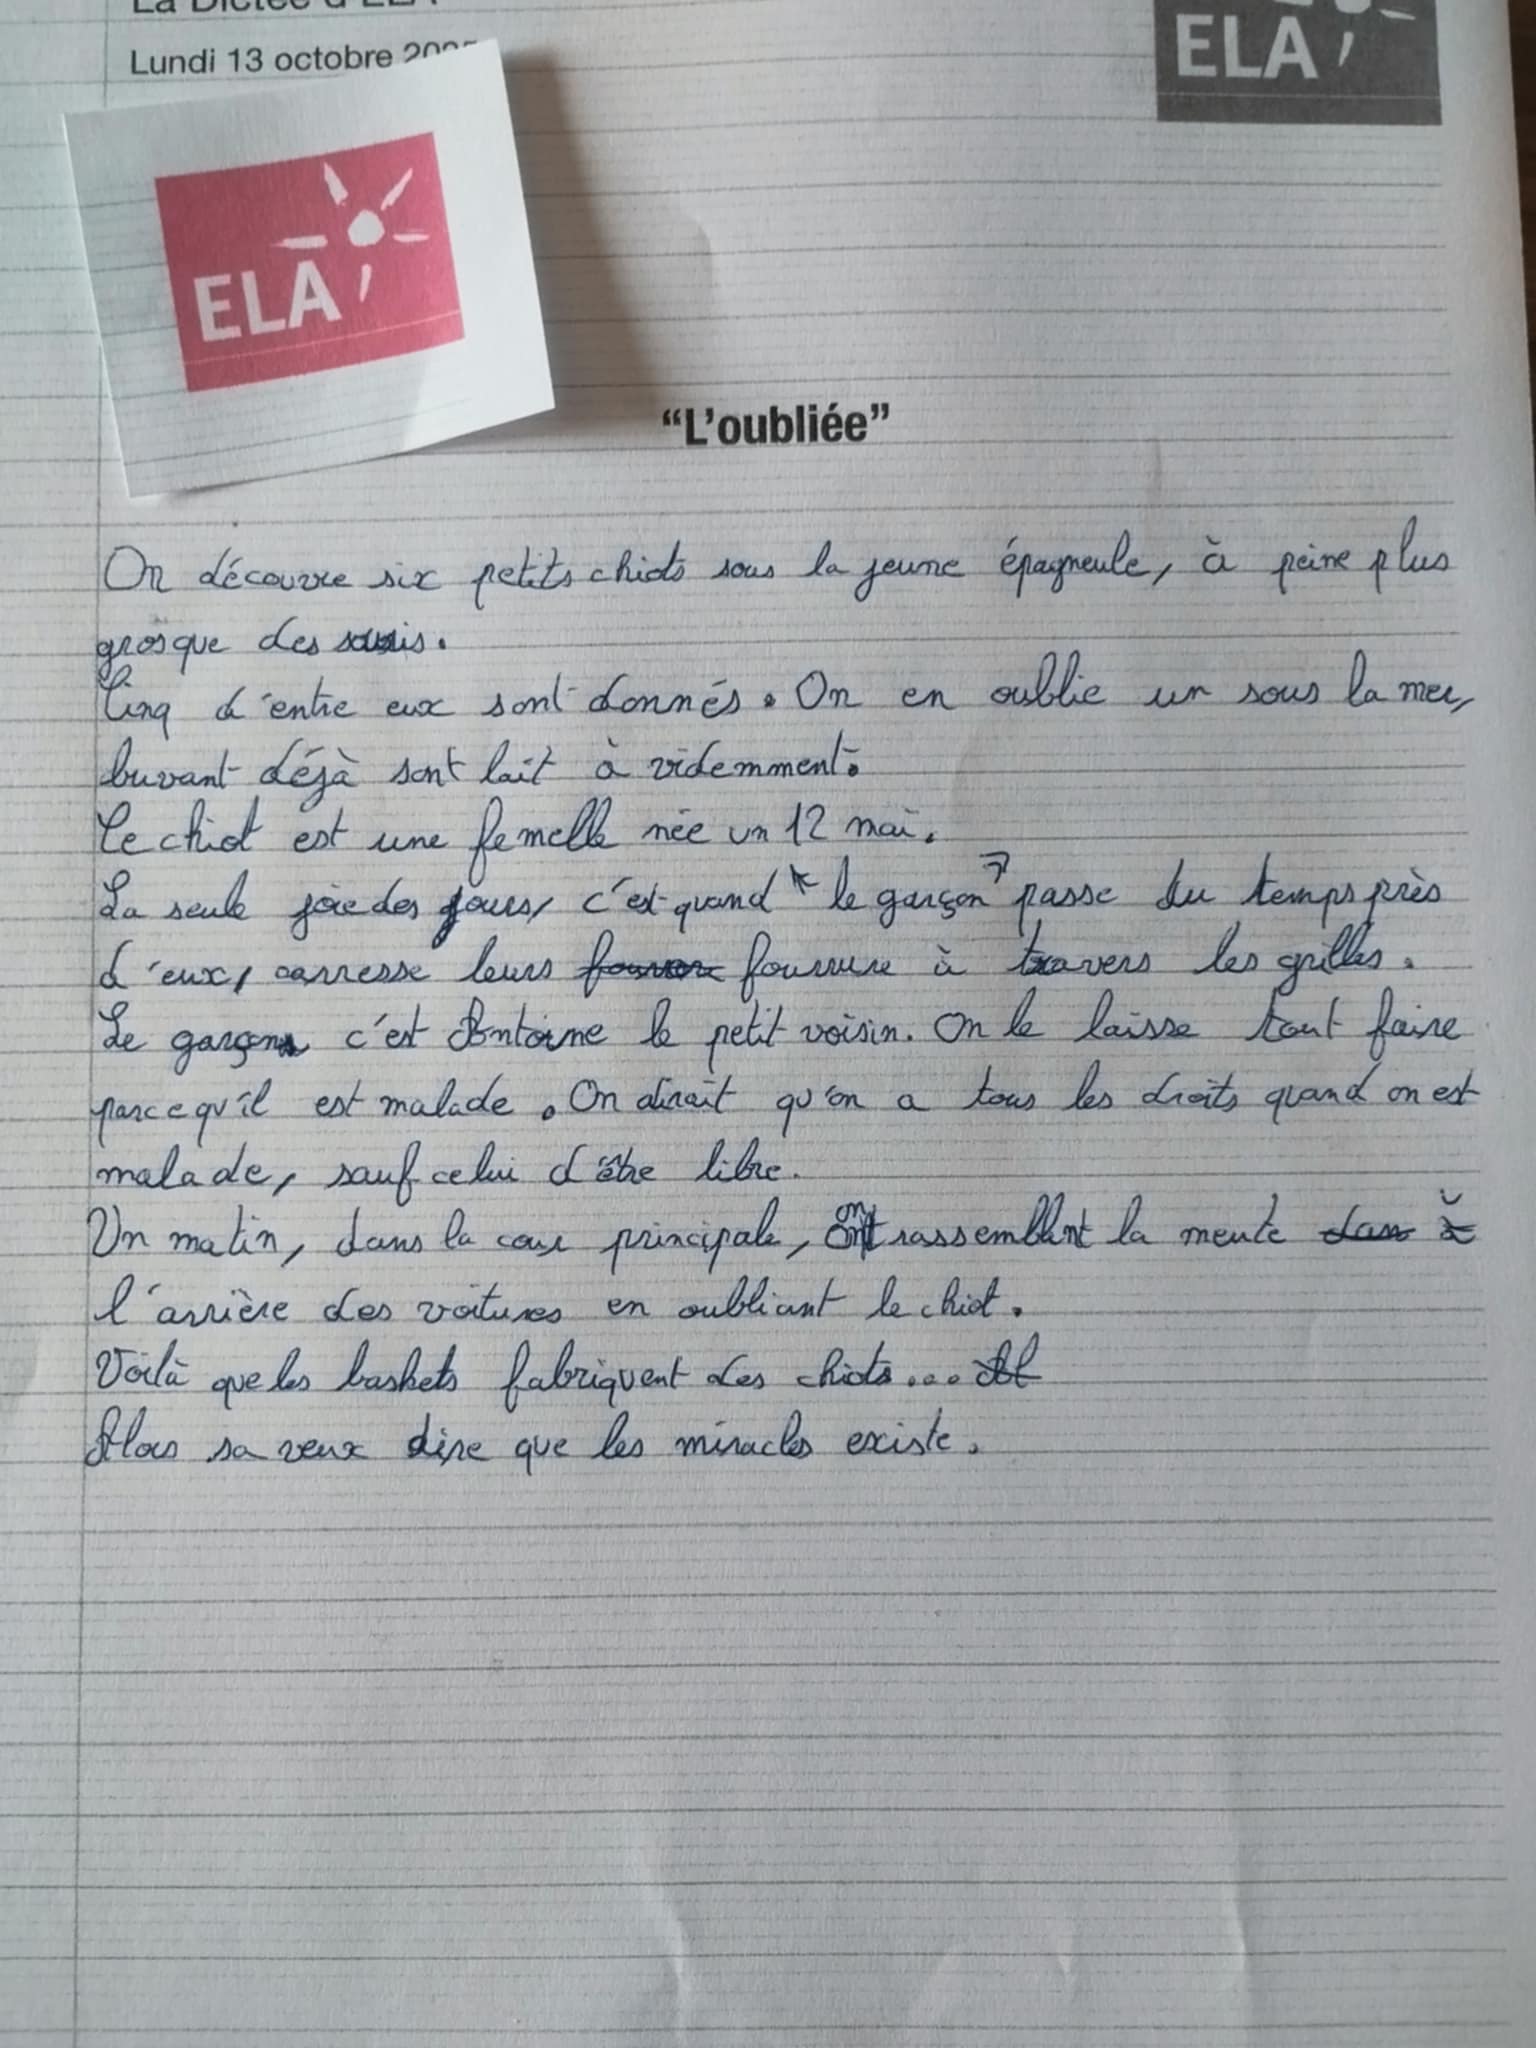 La Dictée d'ELA
Lundi 13 octobre
ELA
ELA
“L'oubliée”
On découvre six petits chiots sous la jeune épagneule, à peine plus
gros que des souris.
Cinq d'entre eux sont donnés. On en oublie un sous la mer,
buvant déjà sont lait à videmment.
Ce chiot est une femelle née un 12 mai.
La seule joie des jours, c'est quand "le garçon" passe du temps près
d'eux, carresse leurs fourrure à travers les grilles.
Le garçon c'est Antoine le petit voisin. On le laisse tout faire
parce qu'il est malade. On dirait qu'on a tous les droits quand on est
malade, sauf celui d'être libre.
Un matin, dans la cour principale, on rassemblent la meute à
l'arrière des voitures en oubliant le chiot.
Voilà que les baskets fabriquent des chiots...
Alors sa veux dire que les miracles existe.